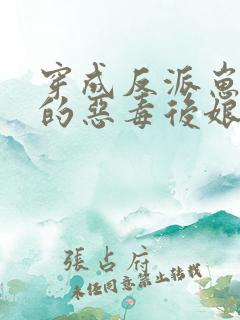 穿成反派崽
的惡毒後娘
張占府
未经同意禁止转载